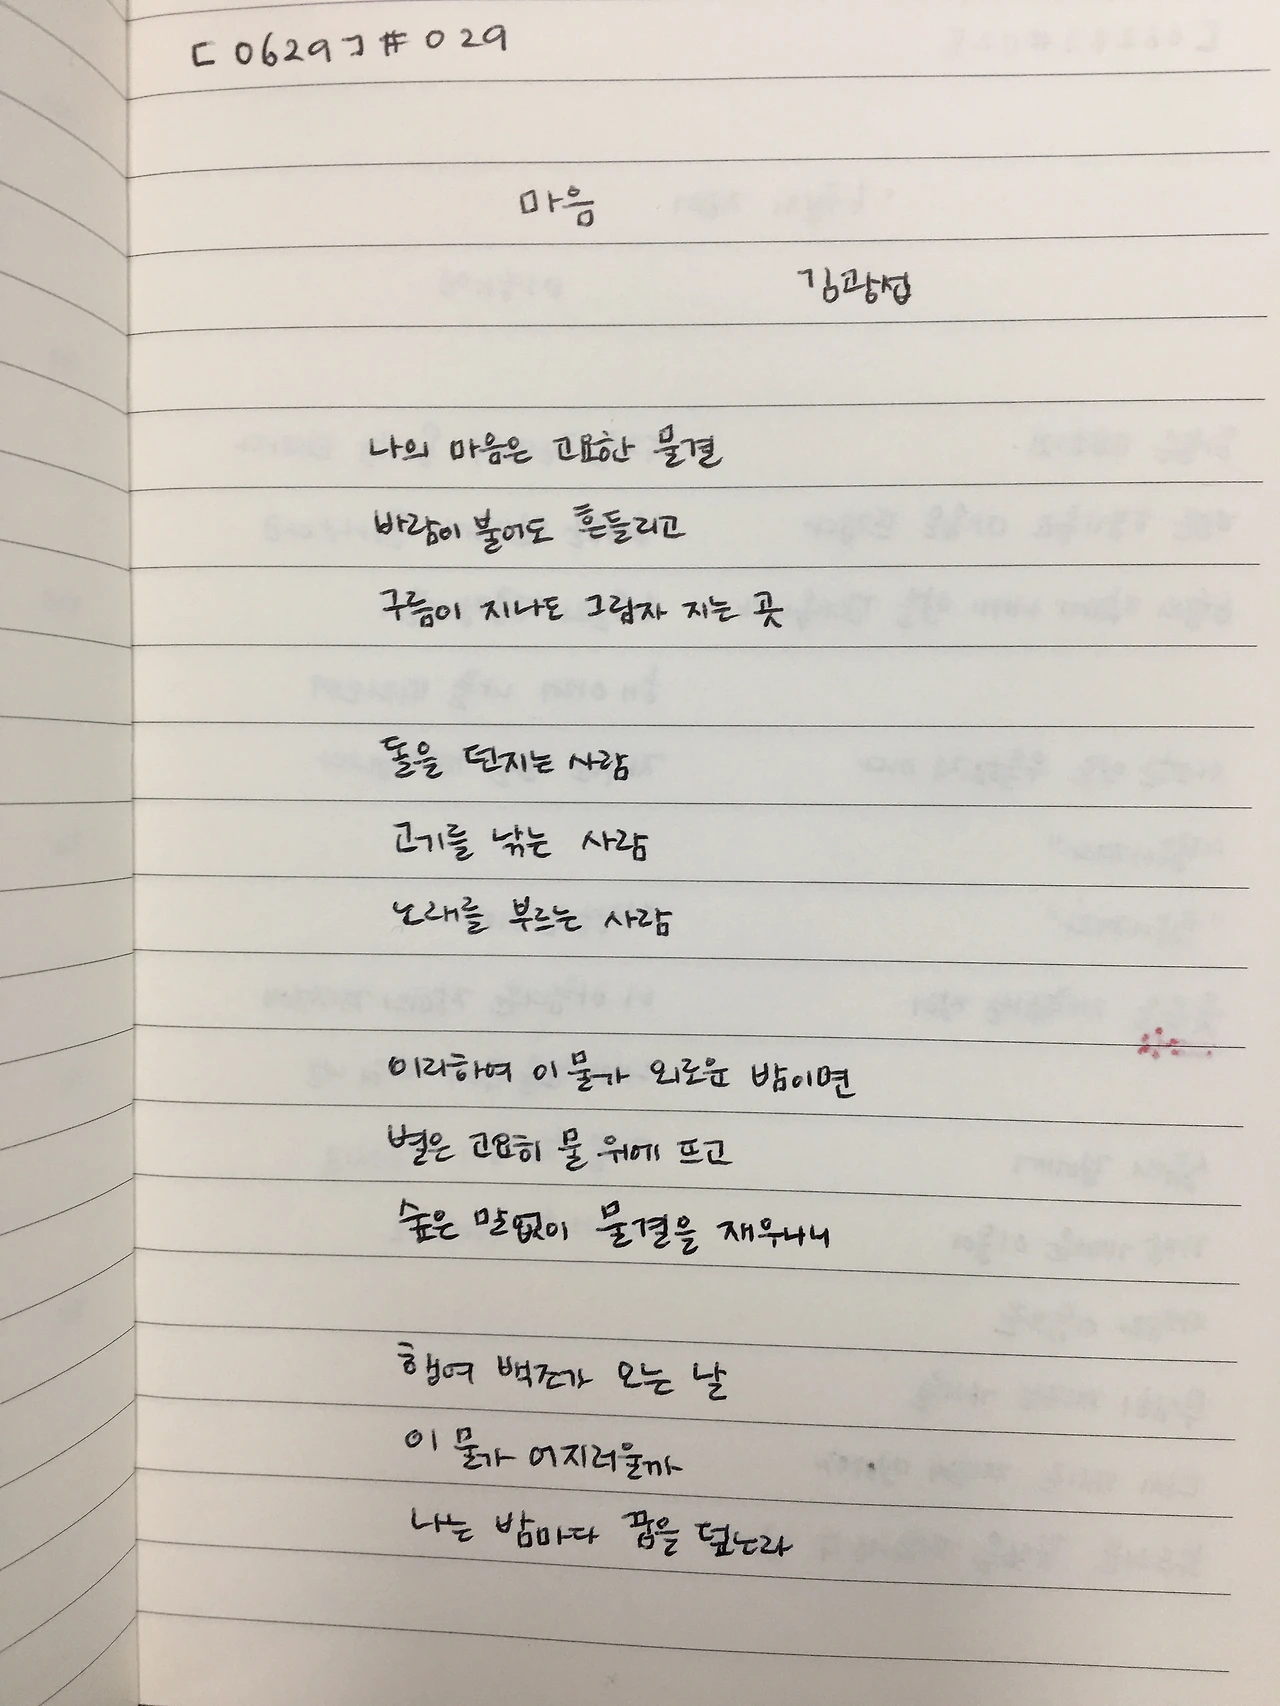 [0629]#029
마음
김광섭
나의 마음은 고요한 물결
바람이 불어도 흔들리고
구름이 지나도 그림자 지는 곳
돌을 던지는 사람
고기를 낚는 사람
노래를 부르는 사람
이리하여 이 물가 외로운 밤이면
별은 고요히 물 위에 뜨고
숲은 말없이 물결을 재우나니
행여 백조가 오는 날
이 물가 어지러울까
나는 밤마다 꿈을 덮노라